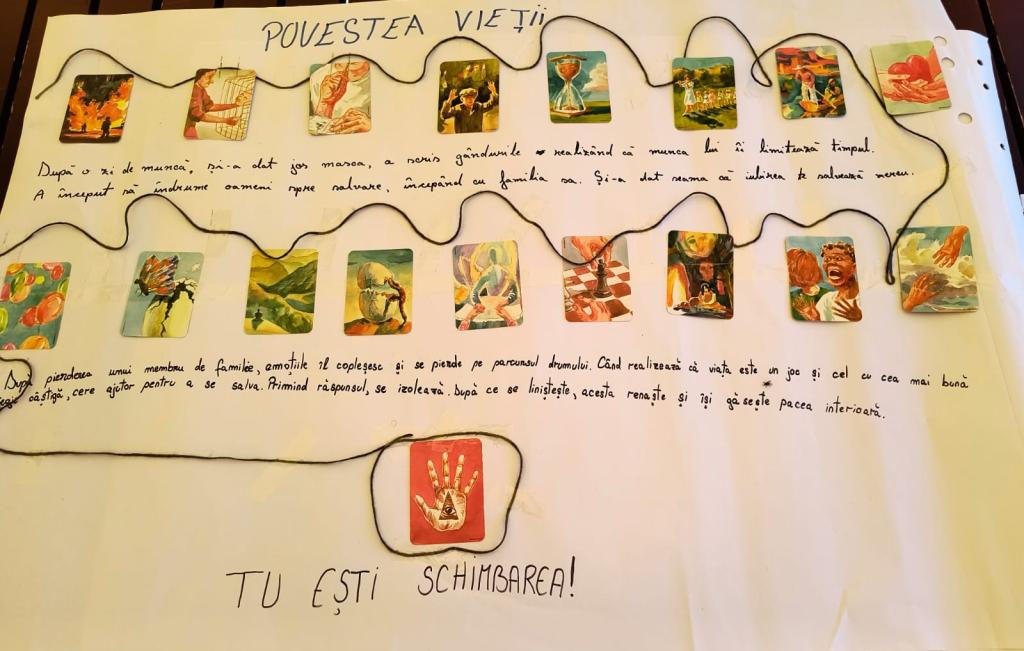 POVESTEA VIEȚII
După o zi de muncă, și-a dat jos masca, a scris gândurile realizând că munca lui îi limitează timpul.
A început să îndrume oameni spre salvare, începând cu familia sa. Și-a dat seama că iubirea te salvează mereu.
După pierderea unui membru de familie, emoțiile îl copleșesc și se pierde pe parcursul drumului. Când realizează că viața este un joc și cel cu cea mai bună
câștigă, cere ajutor pentru a se salva. Primind răspunsul, se izolează. După ce se liniștește, acesta renaște și își găsește pacea interioară.
TU EȘTI SCHIMBAREA!